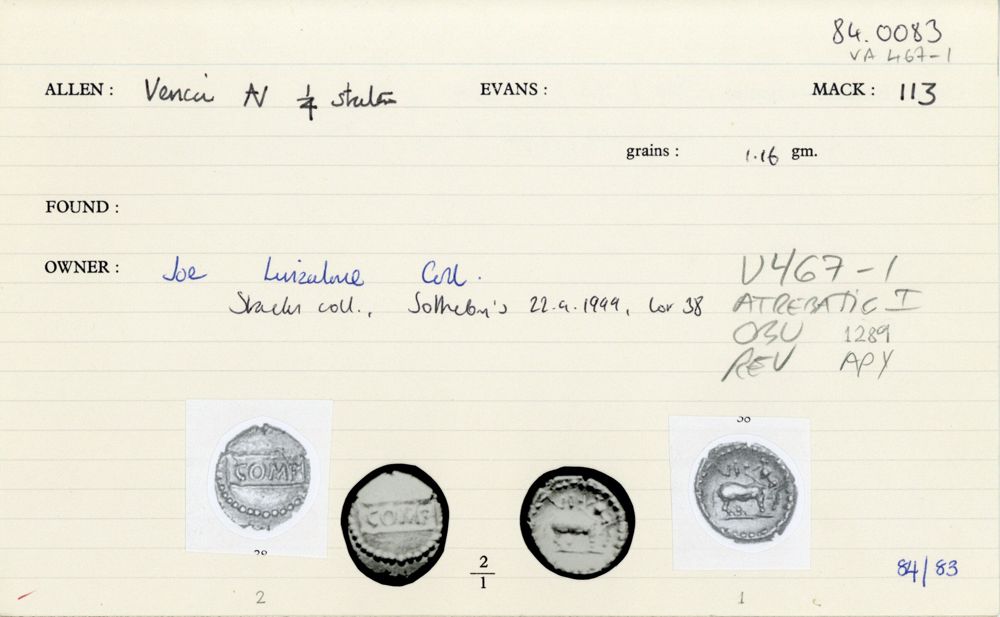 84.0083
VA 467-1
ALLEN : Verica AV 1/4 stater EVANS : MACK : 113
grains : 1.16 gm.
FOUND :
OWNER : Joe Coll.
V467-1
coll., Sotheby's 1999, Lot 38 ATREBATIC I
OBV 1289
REV APY
COMF
COMF
38
38
2
1
84/83
2 1